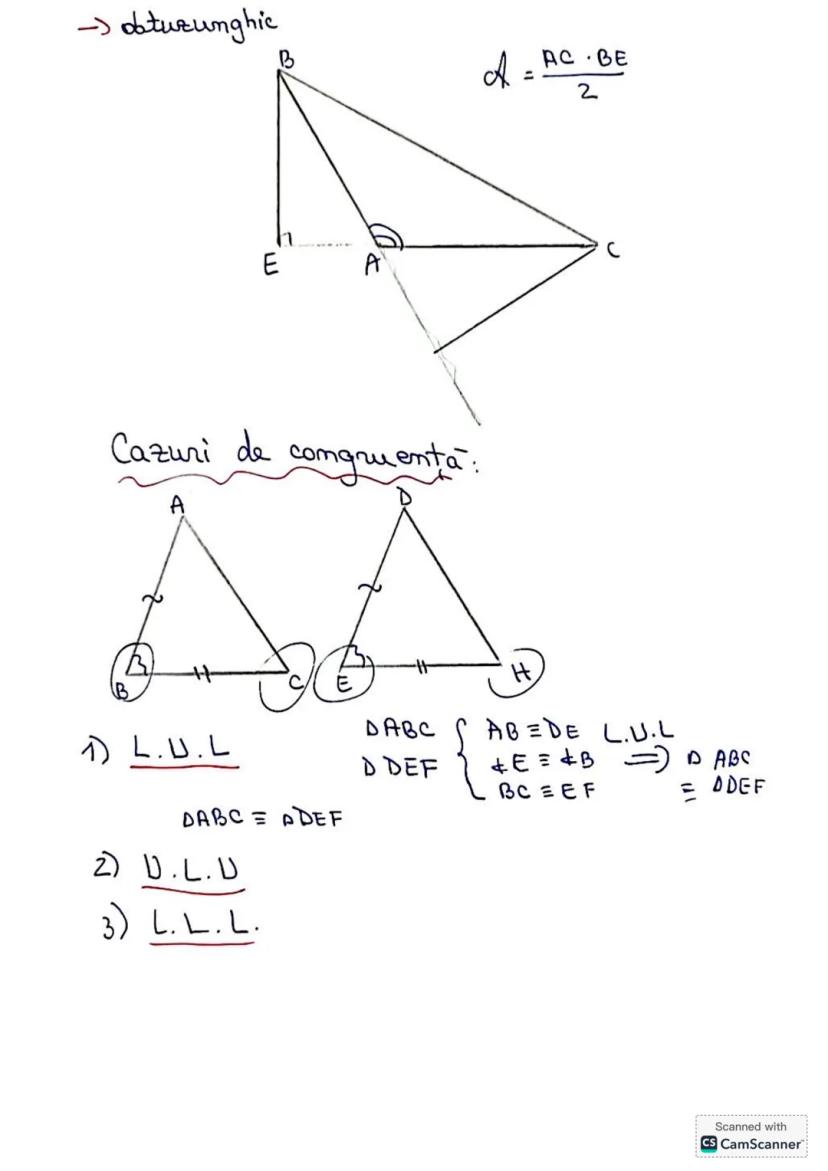 → obtuzunghic
B
A = AC · BE / 2
E
A
C
Cazuri de congruență:
A
D
B
C
E
H
1) L.U.L
ΔABC { AB ≡ DE L.U.L
ΔDEF ∢E ≡ ∢B ⟹ Δ ABC
BC ≡ EF ≡ ΔDEF
ΔABC ≡ ΔDEF
2) U.L.U
3) L.L.L.
Scanned with
CS CamScanner